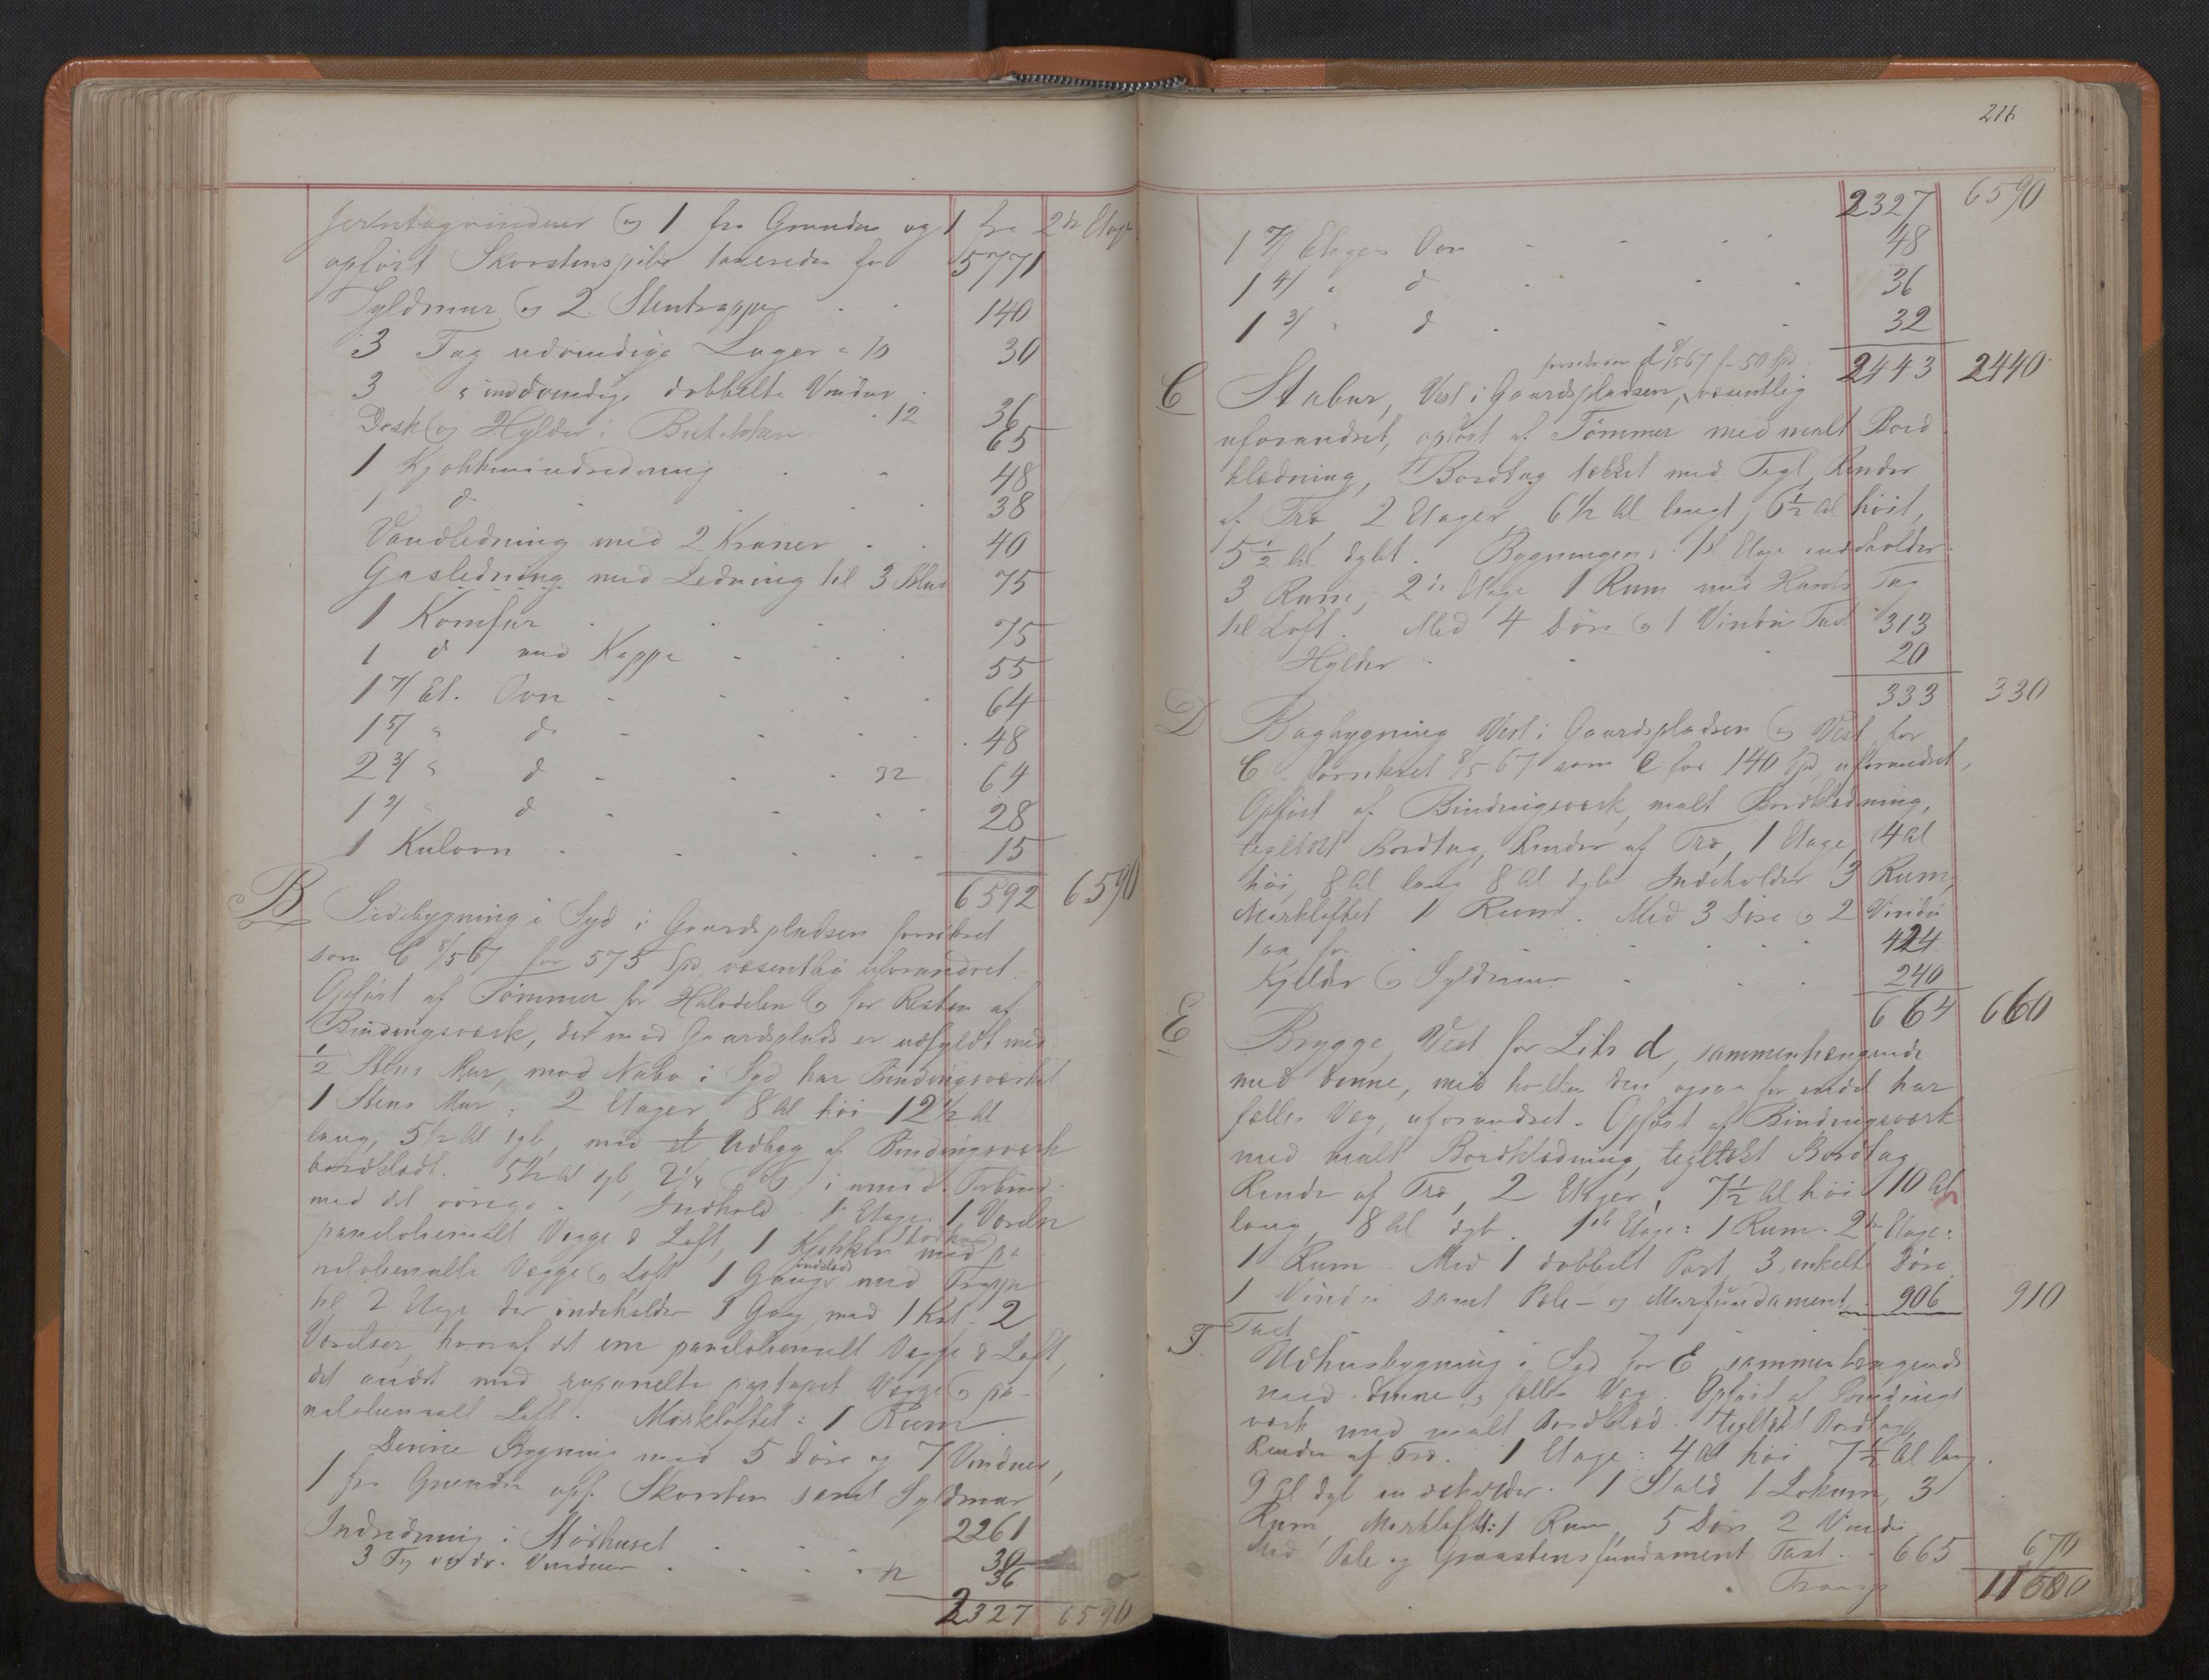 Jerntagvinduer og 1 fra Grunden og 1 fra 2de Etage
opført Skorstenspibe taxeredes for 5771
Syldmur og 2 Stentrapper 140
3 Fag udvendige Luger a 10 30
3 " indvendige dobbelte Vinduer a 12 36
Desk og Hylder i Butikken 65
1 Kjøkkenindredning 48
1 do 38
Vandledning med 2 Kraner 40
Gasledning med Ledning til 3 Blus 75
1 Komfur 75
1 do med Kappe 55
1 7/ Et. Ovn 64
1 5/ " do 48
2 3/ " do 32 64
1 2/ " do 28
1 Kulovn 15
6592 6590
B Sidebygning i Syd i Gaardspladsen forsikret
som C 8/5 67 for 575 Spd væsentlig uforandret.
Opført af Tømmer for Halvdelen og for Resten af
Bindingsværk, der mod Gaardsplads er udfyldt med
1/2 Stens Mur, mod Nabo i Syd har Bindingsværket
1 Stens Mur. 2 Etager, 8 Al høi 12 1/2 Al
lang, 5 1/2 Al dyb, med et Udbyg af Bindingsværk
bordklædt. 5 1/2 Al dyb, 2 1/4 i Forbind.
med det øvrige. Indhold 1 Etage 1 Værelse
panelobemalt Vægge & Loft, 1 Kjøkken med pa
nelobemalte Vægge og Loft 1 Gang med Trappe
til 2 Etage der indeholder 1 Gang med 1 Kot 2
Værelser, hvoraf det ene panelobemalt Vægge & Loft,
det andet med paptapet Vægge og pa-
nelobemalt Loft. Mørkloftet: 1 Rum
Denne Bygning med 5 Døre og 7 Vinduer,
1 fra Grunden opf. Skorsten samt Syldmur 2261
Indredning i 30
3 Fag Vinduer 12 36
2327 6590
216
2327 6590
1 7/ Etages Ovn 48
1 4/ " do 36
1 3/ " do 32
2443 2440
forsikret d 8/5 67 f. 50 Spd
C Stabur, Vest i Gaardspladsen, væsentlig
uforandret, opført af Tømmer med malt Bord
klædning, Bordtag tækket med Tegl, Render
af Træ 2 Etager, 6 1/2 Al langt, 6 1/2 Al høit,
5 1/2 Al dybt. Bygningens 1ste Etage indeholder
3 Rum, 2de Etage 1 Rum med
til Loft. Med 4 Døre og 1 Vindu Taxt 313
Hylder 20
333 330
D Bagbygning Vest i Gaardspladsen og Vest for
C Forsikret 8/5 67 som C for 140 Spd, uforandret,
Opført af Bindingsværk, malt Bordklædning,
tegltækt Bordtag, Render af Træ, 1 Etage, 4 Al
høi, 8 Al lang 8 Al dyb Indeholder 3 Rum,
Mørkloftet 1 Rum. Med 3 Døre og 2 Vindu
tax for 424
Kjelder og Syldmur 240
664 660
E Brygge, Vest for Litr d, sammenhængende
med denne, med hvilken den ogsaa for endel har
fælles Væg, uforandret. Opført af Bindingsværk
med malt Bordklædning, tegltækt Bordtag
Render af Træ, 2 Etager, 7 1/2 Al høi 10 Al
lang, 8 Al dyb. 1ste Etage: 1 Rum. 2den Etage:
1 Rum. Med 1 dobbelt Port 3 enkelte Døre
1 Vindu samt Pæle- og Murfundament 906 910
Taxt
F Udhusbygning i Syd for E sammenhængende
med denne og fælles Væg. Opført af Bindings
værk med malt Bordklæd. tegltækt Bordtag,
Render af Træ. 1 Etage: 4 Al høi 7 1/2 Al lang.
9 Al dyb indeholder. 1 Stald 1 Lokum, 3
Rum, Mørkloftet: 1 Rum, 5 Døre 2 Vindu
Med Pæle og Graastensfundament Taxt 665 670
Transp 11600